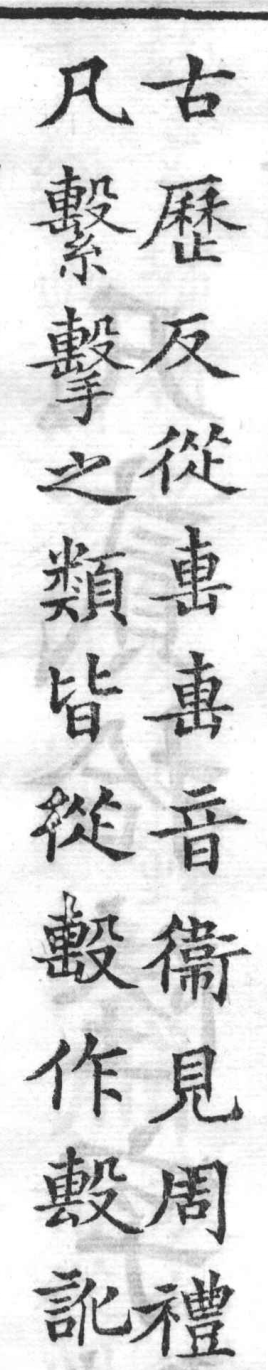 古歷反從軎軎音衞見周禮
凡繫擊之類皆從毄作㲃訛